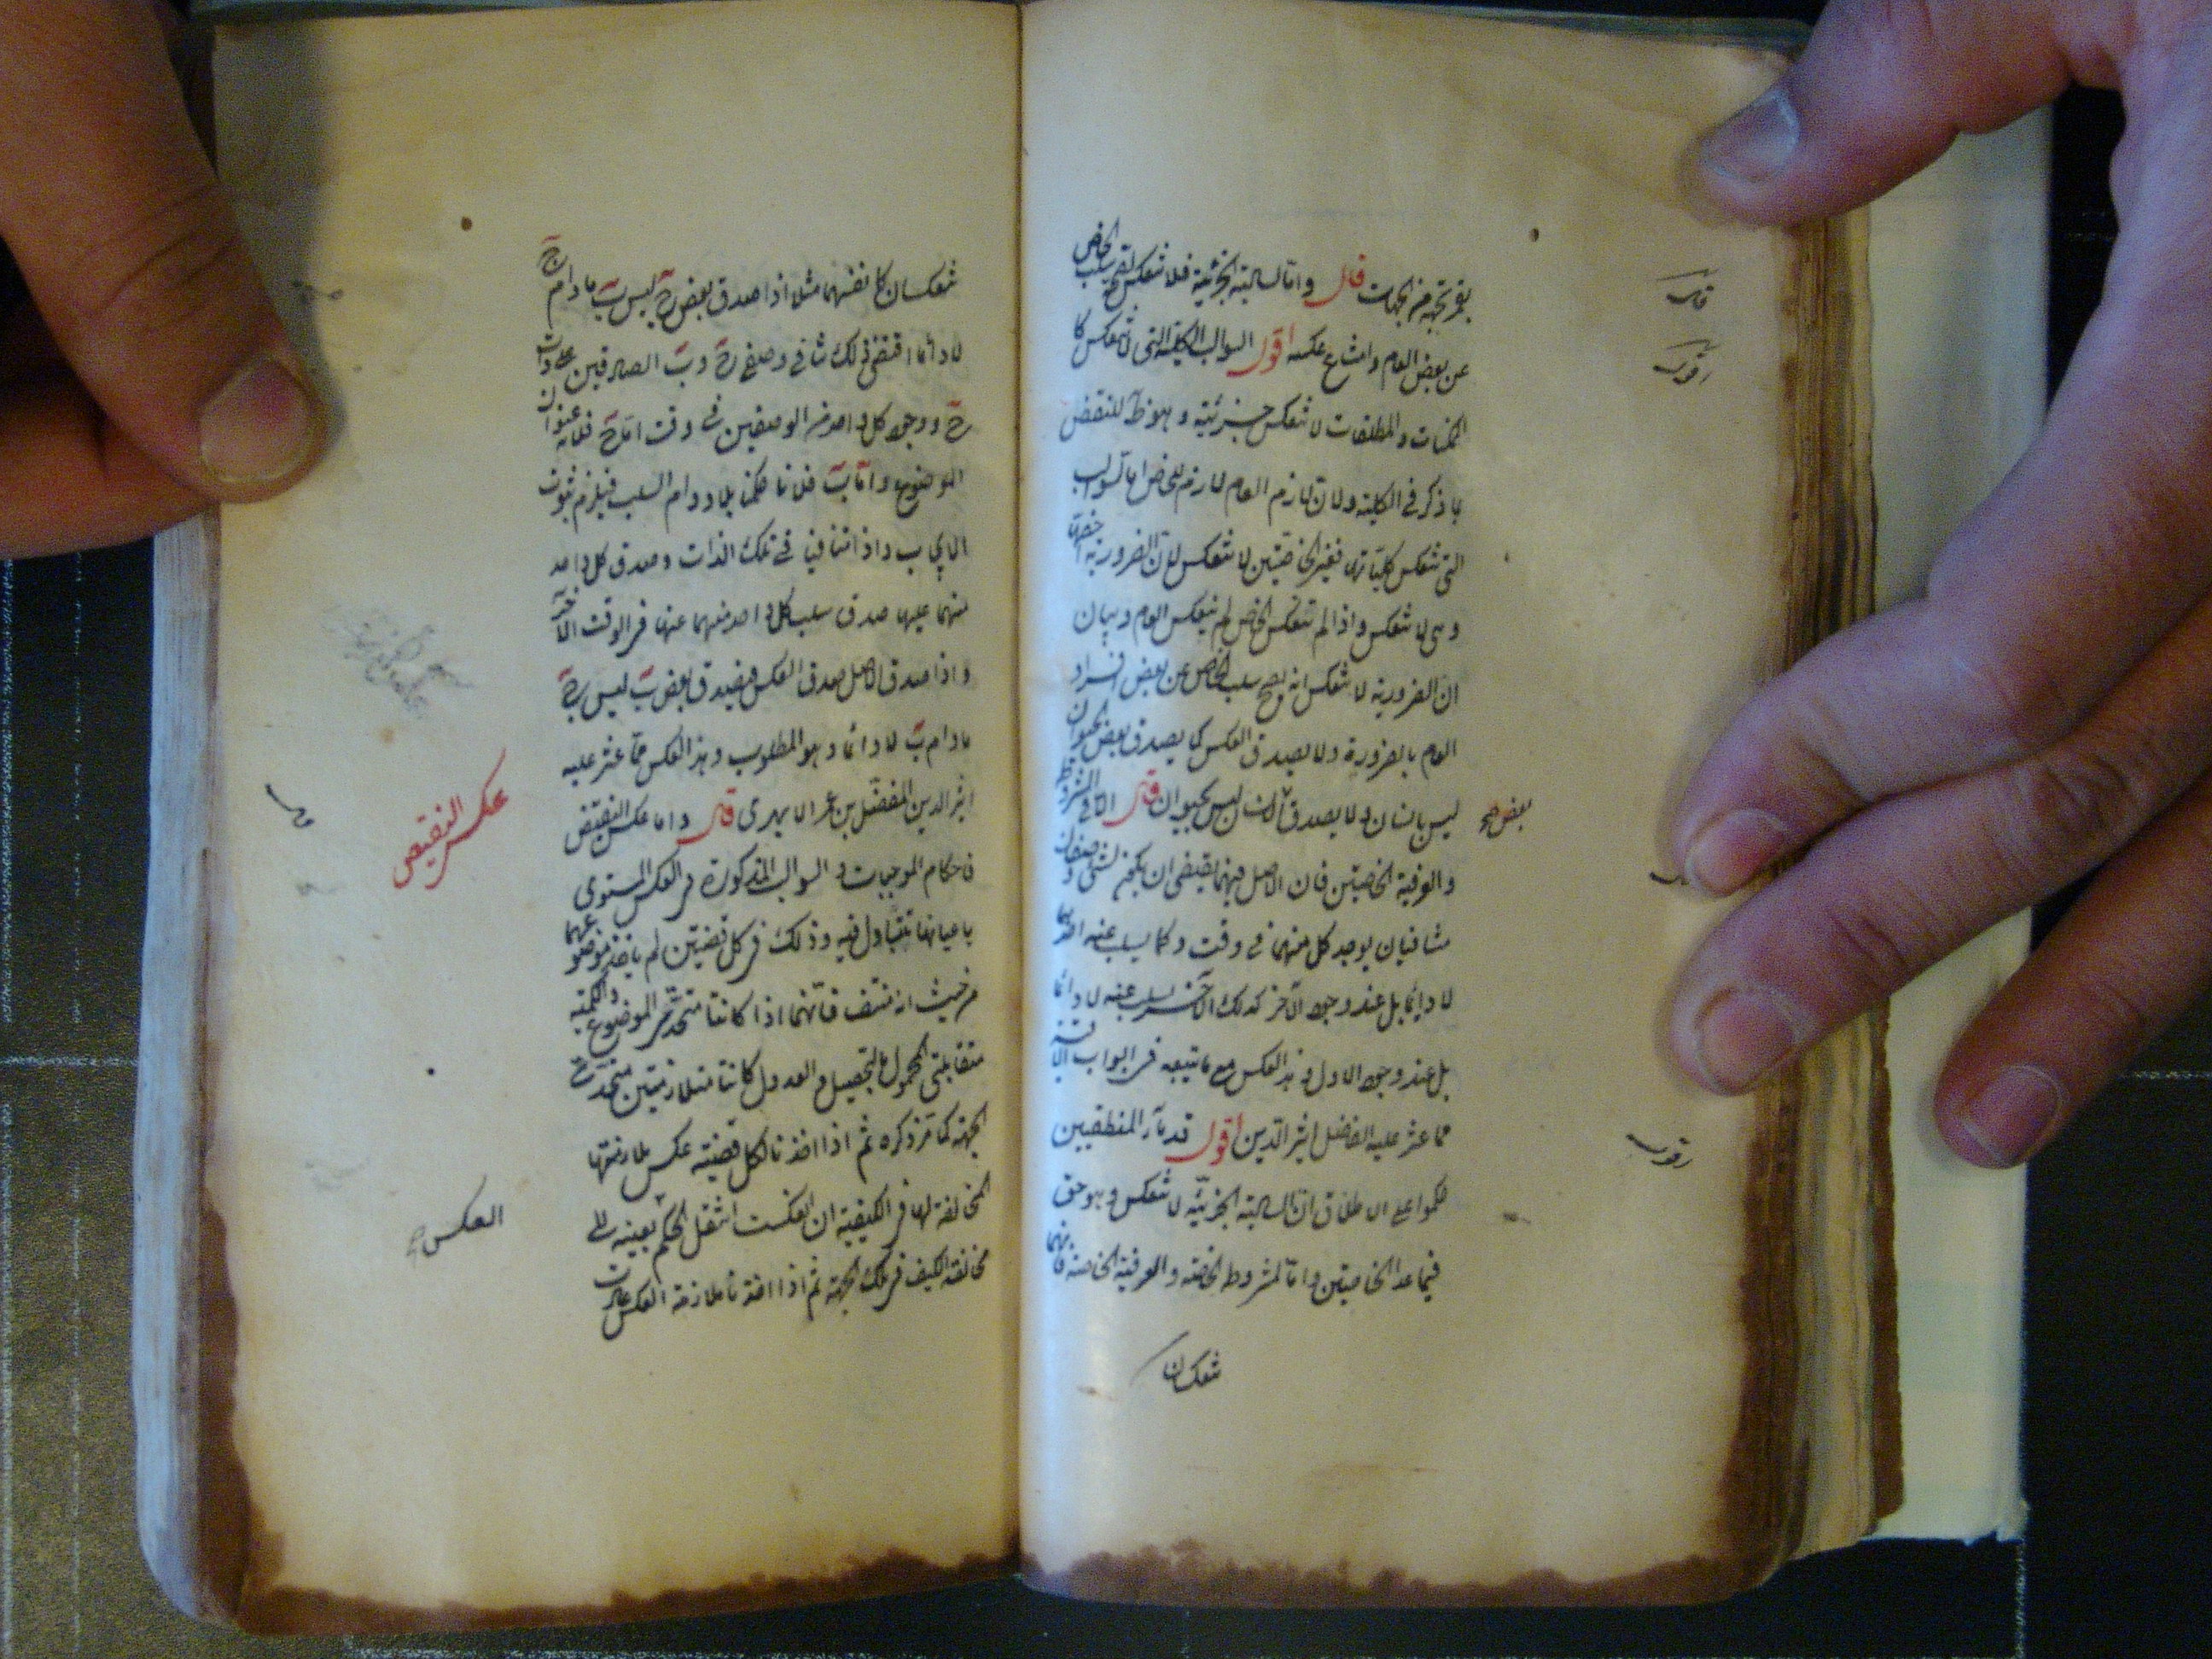 بقى تجهة من الجهات قال واما السالبة الجزئية فلا تنعكس لصحة سلب الخاص
عن بعض العام وامتناع عكسه اقول السوالب الكلية التى لا تنعكس كا
لممكنات والمطلقات لا تنعكس جزئية وهو ظ للنقض
بما ذكر فى الكلية ولان لازم العام لازم للخاص اما السوالب
التى تنعكس كلياتها فغير الخاصتين لا تنعكس لان الضرورية اخصها
وهى لا تنعكس واذا لم تنعكس الخاص لم ينعكس العام وبيان
ان الضرورية لا تنعكس انه يصح سلب الخاص عن بعض افراد
العام بالضرورة ولا يصدق العكس كما يصدق بعض الحيوان
ليس بانسان ولا يصدق الانسان ليس بحيوان قال الا فى المشروطة
بعض صح
والعرفية الخاصتين فان الاصل فيهما يقتضى ان يكون لشىء وصفان
متنافيان يوجد كل منهما فى وقت وكما يسلب عنه احدهما
لا دائما بل عند وجود الآخر كذلك الآخر يسلب عنه لا دائما
بل عند وجود الاول وهذا العكس مع ما يتبعه فى ابواب
مما عثر عليه الفاضل اثير الدين اقول قدماء المنطقيين
حكموا على الاطلاق ان السالبة الجزئية لا تنعكس وهو حق
فيما عدا الخاصتين واما المشروطة الخاصة والعرفية الخاصة فانهما
تنعكسان
تنعكسان كانفسهما مثلا اذا صدق بعض ج ليس ب ما دام ج
لا دائما اقتضى ذلك تنافى وصفى ج و ب الصادقين على ذات
ج ووجود كل واحد من الوصفين فى وقت اما ج فلانه عنوان
الموضوع واما ب فلانا حكمنا بلا دوام السلب فيلزم ثبوت
الباء ب واذا تنافيا فى تلك الذات وصدق كل واحد
منهما عليها صدق سلب كل واحد منهما عنها فى الوقت الآخر
واذا صدق الاصل صدق العكس فيصدق بعض ب ليس ج
ما دام ب لا دائما وهو المطلوب وهذا العكس مما عثر عليه
اثير الدين المفضل بن عمر الابهرى قال واما عكس النقيض
عكس النقيض
فاحكام الموجبات والسوالب المذكورة فى العكس المستوى
باعيانها تتبادل فيه وذلك فى كل قضيتين لم ياخذ موضوعهما
من حيث انه منتف فانهما اذا كانتا متحدتى الموضوع والكمية
متقابلتى المحمول بالتحصيل والعدول كانتا متلازمتين متحدتى
الجهة كما مر ذكره ثم اذا اخذنا لكل قضية عكس ملازمتها
المخالفة لها فى الكيفية ان انعكست انتقل الحكم بعينه الى
العكس صح
مخالفة الكيف فى تلك الجهة ثم اذا اخذنا ملازمة العكس